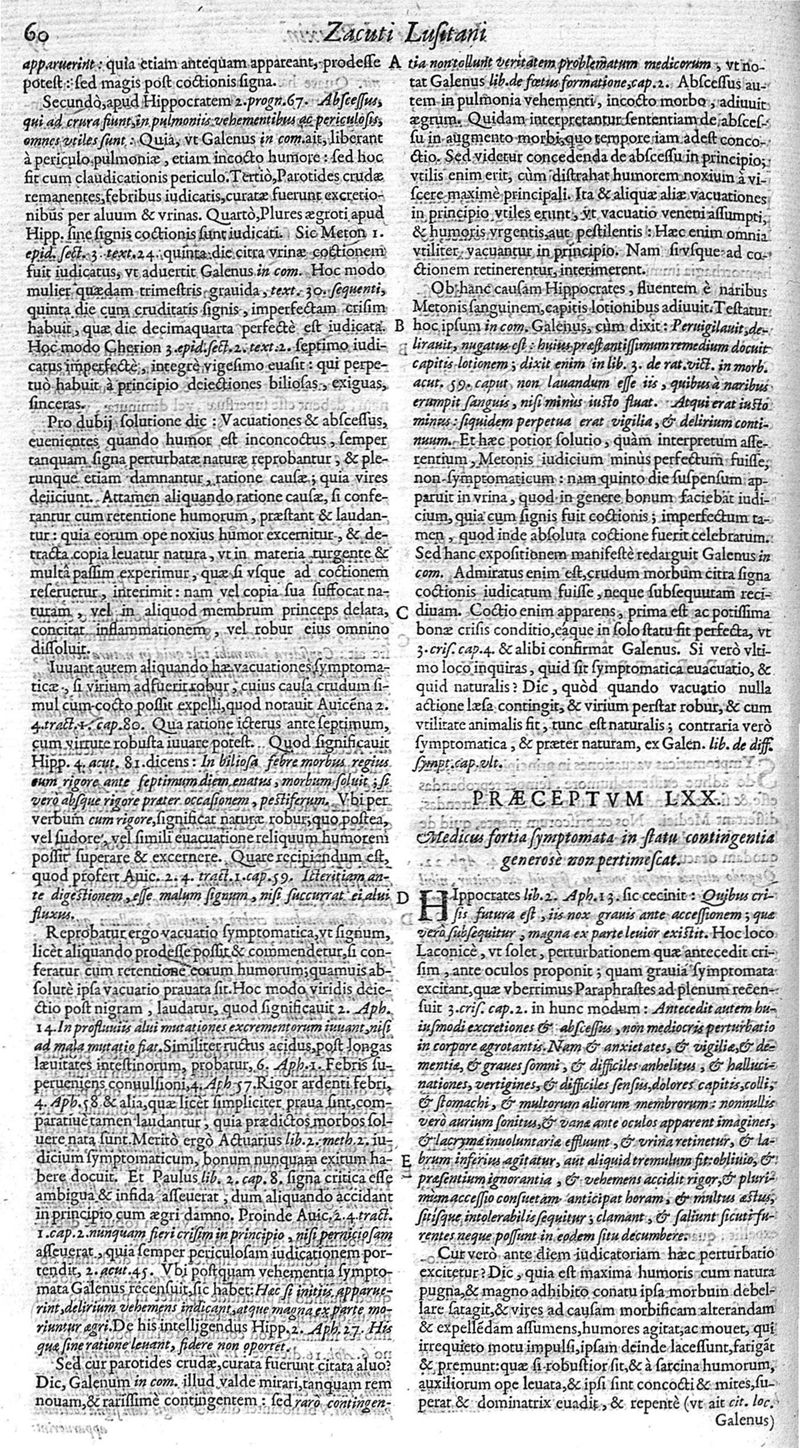 60
Zacuti Lusitani
apparuerint: quia etiam antequam appareant, prodesse
potest: sed magis post coctionis signa.
Secundò, apud Hippocratem 2. progn. 67. Abscessus,
qui ad crura fiunt, in pulmoniis vehementibus ac periculosis,
omnes vtiles sunt: Quia, vt Galenus in com. ait, liberant
à periculo pulmoniæ, etiam incocto humore: sed hoc
fit cum claudicationis periculo. Tertiò, Parotides crudæ
remanentes, febribus iudicatis, curatæ fuerunt excretio-
nibus per aluum & vrinas. Quartò, Plures ægroti apud
Hipp. sine signis coctionis sunt iudicati. Sic Meton 1.
epid. sect. 3. text. 24. quinta die citra vrinæ coctionem
fuit iudicatus, vt aduertit Galenus in com. Hoc modo
mulier quædam trimestris grauida, text. 30. sequenti,
quinta die cum cruditatis signis, imperfectam crisim
habuit, quæ die decimaquarta perfectè est iudicata.
Hoc modo Cherion 3. epid. sect. 2. text. 2. septimo iudi-
catus imperfectè, integrè vigesimo euasit: qui perpe-
tuò habuit à principio deiectiones biliosas, exiguas,
sinceras.
Pro dubij solutione dic: Vacuationes & abscessus,
euenientes quando humor est inconcoctus, semper
tanquam signa perturbatæ naturæ reprobantur, & ple-
runque etiam damnantur, ratione causæ; quia vires
deiiciunt. Attamen aliquando ratione causæ, si confe-
rantur cum retentione humorum, præstant & laudan-
tur: quia eorum ope noxius humor excernitur, & de-
tracta copia leuatur natura, vt in materia turgente &
multa passim experimur, quæ si vsque ad coctionem
reseruetur, interimit: nam vel copia sua suffocat na-
turam, vel in aliquod membrum princeps delata,
concitat inflammationem, vel robur eius omnino
dissoluit.
Iuuant autem aliquando hæ vacuationes symptoma-
ticæ, si virium adsuerit robur, cuius causa crudum si-
mul cum cocto possit expelli, quod notauit Auicena 2.
4. tract. 1. cap. 80. Qua ratione icterus ante septimum,
cum virtute robusta iuuare potest. Quod significauit
Hipp. 4. acut. 81. dicens: In biliosa febre morbus regius
cum rigore ante septimum diem enatus, morbum soluit; si
verò absque rigore præter occasionem, pestiferum. Vbi per
verbum cum rigore, significat naturæ robur, quo postea,
vel sudore, vel simili euacuatione reliquum humorem
possit superare & excernere. Quare recipiendum est,
quod profert Auic. 2. 4. tract. 1. cap. 59. Icteritiam an-
te digestionem, esse malum signum, nisi succurrat ei alui
fluxus.
Reprobatur ergo vacuatio symptomatica, vt signum,
licèt aliquando prodesse possit & commendetur, si con-
feratur cum retentione eorum humorum; quamuis ab-
solutè ipsa vacuatio prauata sit. Hoc modo viridis deie-
ctio post nigram, laudatur, quod significauit 2. Aph.
14. In profluuiis alui mutationes excrementorum iuuant, nisi
ad mala mutatio fiat. Similiter ructus acidus, post longas
læuitates intestinorum, probatur, 6. Aph. 1. Febris su-
perueniens conuulsioni, 4. Aph 57. Rigor ardenti febri,
4. Aph. 58 & alia, quæ licèt simpliciter praua sint, com-
paratiuè tamen laudantur, quia prædictos morbos sol-
uere nata sunt. Meritò ergò Actuarius lib. 2. meth. 2. iu-
dicium symptomaticum, bonum nunquam exitum ha-
bere docuit. Et Paulus lib. 2. cap. 8. signa critica esse
ambigua & infida asseuerat; dum aliquando accidant
in principio cum ægri damno. Proinde Auic. 2. 4. tract.
1. cap. 2. nunquam fieri crisim in principio, nisi perniciosam
asseuerat, quia semper periculosam iudicationem por-
tendit, 2. acut. 45. Vbi postquam vehementia sympto-
mata Galenus recensuit, sic habet: Hæc si initiis apparue-
rint, delirium vehemens indicant, atque magna ex parte mo-
riuntur ægri. De his intelligendus Hipp. 2. Aph. 27. His
quæ sine ratione leuant, fidere non oportet.
Sed cur parotides crudæ, curatæ fuerunt citata aluo?
Dic, Galenum in com. illud valde mirari, tanquam rem
nouam, & rarissimè contingentem: sed raro contingen-
A tia non tollunt veritatem problematum medicorum, vt no-
tat Galenus lib. de fœtus formatione, cap. 2. Abscessus au-
tem in pulmonia vehementi, incocto morbo, adiuuit
ægrum. Quidam interpretantur sententiam de absces-
su in augmento morbi, quo tempore iam adest conco-
ctio. Sed videtur concedenda de abscessu in principio;
vtilis enim erit, cùm distrahat humorem noxium à vi-
scere maximè principali. Ita & aliquæ aliæ vacuationes
in principio vtiles erunt, vt vacuatio veneni assumpti,
& humoris vrgentis, aut pestilentis: Hæc enim omnia
vtiliter vacuantur in principio. Nam si vsque ad co-
ctionem retinerentur, interimerent.
Ob hanc causam Hippocrates, fluentem è naribus
Metonis sanguinem, capitis lotionibus adiuuit. Testatur
B hoc ipsum in com. Galenus, cùm dixit: Peruigilauit, de-
lirauit, nugatus est: huius præstantissimum remedium docuit
capitis lotionem; dixit enim in lib. 3. de rat. vict. in morb.
acut. 59. caput non lauandum esse iis, quibus à naribus
erumpit sanguis, nisi minùs iusto fluat. Atqui erat iusto
minus: siquidem perpetua erat vigilia, & delirium conti-
nuum. Et hæc potior solutio, quàm interpretum asse-
rentium, Metonis iudicium minùs perfectum fuisse,
non symptomaticum: nam quinto die suspensum ap-
paruit in vrina, quod in genere bonum faciebat iudi-
cium, quia cum signis fuit coctionis; imperfectum ta-
men, quod inde absoluta coctione fuerit celebratum.
Sed hanc expositionem manifestè redarguit Galenus in
com. Admiratus enim est, crudum morbum citra signa
coctionis iudicatum fuisse, neque subsequutam reci-
C diuam. Coctio enim apparens, prima est ac potissima
bonæ crisis conditio, eaque in solo statu fit perfecta, vt
3. cris. cap. 4. & alibi confirmat Galenus. Si verò vlti-
mo loco inquiras, quid sit symptomatica euacuatio, &
quid naturalis? Dic, quòd quando vacuatio nulla
actione læsa contingit, & virium perstat robur, & cum
vtilitate animalis fit, tunc est naturalis; contraria verò
symptomatica, & præter naturam, ex Galen. lib. de diff.
sympt. cap. vlt.
PRÆCEPTVM LXX.
Medicus fortia symptomata in statu contingentia
generosè non pertimescat.
D HIppocrates lib. 2. Aph. 13. sic cecinit: Quibus cri-
sis futura est, iis nox grauis ante accessionem; quæ
verò subsequitur, magna ex parte leuior existit. Hoc loco
Laconicè, vt solet, perturbationem quæ antecedit cri-
sim, ante oculos proponit; quam grauia symptomata
excitant, quæ vberrimus Paraphrastes ad plenum recen-
suit 3. cris. cap. 2. in hunc modum: Antecedit autem hu-
iusmodi excretiones & abscessus, non mediocris perturbatio
in corpore ægrotantis. Nam & anxietates, & vigiliæ, & de-
mentiæ, & graues somni, & difficiles anhelitus, & halluci-
nationes, vertigines, & difficiles sensus, dolores capitis, colli,
& stomachi, & multorum aliorum membrorum: nonnullis
verò aurium sonitus, & vanæ ante oculos apparent imagines,
& lacrymæ inuoluntariæ effluunt, & vrina retinetur, & la-
E brum inferius agitatur, aut aliquid tremulum fit: obliuio, &
præsentium ignorantia, & vehemens accidit rigor, & pluri-
mùm accessio consuetam anticipat horam, & multus æstus,
sitisque intolerabilis sequitur; clamant, & saliunt sicuti fu-
rentes neque possunt in eodem situ decumbere.
Cur verò ante diem iudicatoriam hæc perturbatio
excitetur? Dic, quia est maxima humoris cum natura
pugna, & magno adhibito conatu ipsa morbum debel-
lare satagit, & vires ad causam morbificam alterandam
& expellēdam assumens, humores agitat, ac mouet, qui
irrequieto motu impulsi, ipsam deinde lacessunt, fatigāt
& premunt: quæ si robustior sit, & à sarcina humorum,
auxiliorum ope leuata, & ipsi sint concocti & mites, su-
perat & dominatrix euadit, & repentè (vt ait cit. loc.
Galenus)